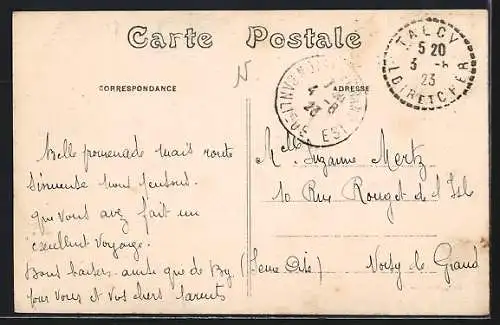 Carte Postale
CORRESPONDANCE
ADRESSE
TALCY
5 20
3 - 8
23
LOIR ET CHER
EST
Belle promenade mais route
Sinueuse nous
que vous avez fait un
excellent voyage.
Bons baisers ainsi que de
pour vous et vos chers parents
M^lle Suzanne Mertz
10 Rue Rouget de l'Isle
Noisy le Grand
(Seine Oise)